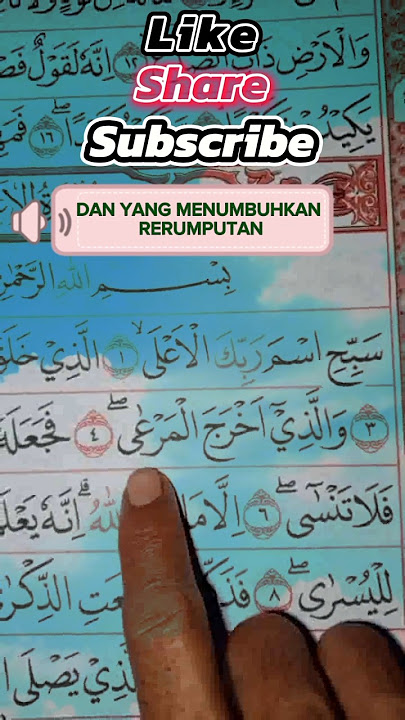 Like
Share
Subscribe
DAN YANG MENUMBUHKAN
RERUMPUTAN
وَالْاَرْضِ ذَاتِ الصَّ ١٢ اِنَّهٗ لَقَوْلٌ
يَكِيْدُ ١٦
بِسْمِ اللّٰهِ الرَّحْمٰنِ
سَبِّحِ اسْمَ رَبِّكَ الْاَعْلَىۙ ١ الَّذِيْ خَلَقَ
٣ وَالَّذِيْٓ اَخْرَجَ الْمَرْعٰىۖ ٤ فَجَعَلَهٗ
فَلَا تَنْسٰىٓۖ ٦ اِلَّا مَا اللّٰهُ ۗ اِنَّهٗ يَعْلَمُ
لِلْيُسْرٰىۖ ٨ الذِّكْرٰى
يَصْلَى